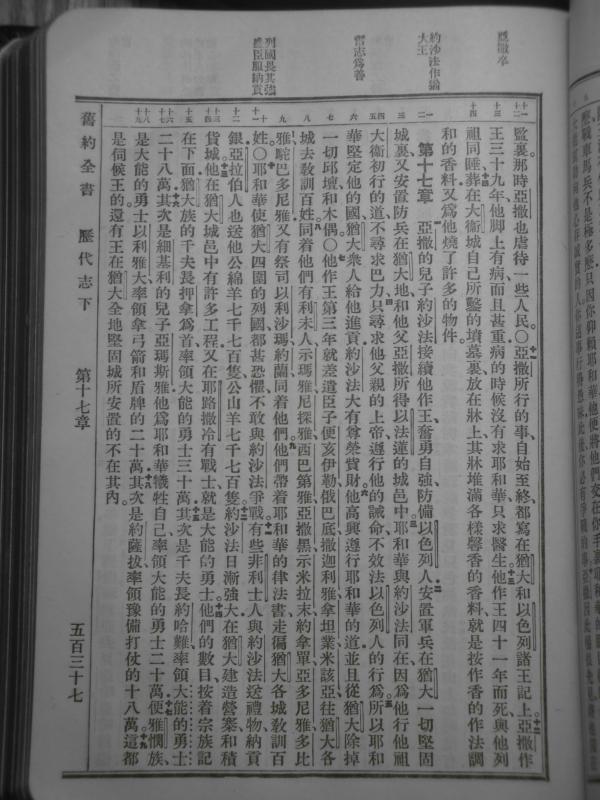 亞撒卒
約沙法作猶大王
奮志爲善
列國畏其強盛臣服納貢
監裏那時亞撒也虐待一些人民○亞撒所行的事自始至終都寫在猶大和以色列諸王記上亞撒作
王三十九年他脚上有病而且甚重病的時候沒有求耶和華只求醫生他作王四十一年而死與他列
祖同睡葬在大衞城自己所鑿的墳墓裏放在牀上其牀堆滿各樣馨香的香料就是按作香的作法調
和的香料又爲他燒了許多的物件
第十七章 亞撒的兒子約沙法接續他作王奮勇自強防備以色列人安置軍兵在猶大一切堅固
城裏又安置防兵在猶大地和他父亞撒所得以法蓮的城邑中耶和華與約沙法同在因爲他行他祖
大衞初行的道不尋求巴力只尋求他父親的上帝遵行他的誡命不效法以色列人的行爲所以耶和
華堅定他的國猶大衆人給他進貢約沙法大有尊榮貲財他高興遵行耶和華的道並且從猶大除掉
一切邱壇和木偶○他作王第三年就差遣臣子便亥伊勒俄巴底撒迦利雅拿坦業米該亞往猶大各
城去敎訓百姓同着他們有利未人示瑪雅尼探雅西巴第雅亞撒黑示米拉末約拿單亞多尼雅多比
雅駝巴多尼雅又有祭司以利沙瑪約蘭同着他們他們帶着耶和華的律法書走徧猶大各城敎訓百
姓○耶和華使猶大四圍的列國都甚恐懼不敢與約沙法爭戰有些非利士人與約沙法送禮物納貢
銀亞拉伯人也送他公綿羊七千七百隻公山羊七千七百隻約沙法日漸強大在猶大建造營寨和積
貨城他在猶大城邑中有許多工程又在耶路撒冷有戰士就是大能的勇士他們的數目按着宗族記
在下面猶大族的千夫長押拿爲首率領大能的勇士三十萬其次是千夫長約哈難率領大能的勇士
二十八萬其次是細基利的兒子亞瑪斯雅他爲耶和華犧牲自己率領大能的勇士二十萬便雅憫族
是大能的勇士以利雅大率領拿弓箭和盾牌的二十萬其次是約薩拔率領豫備打仗的十八萬這都
是伺候王的還有王在猶大全地堅固城所安置的不在其內
舊約全書 歷代志下 第十七章 五百三十七